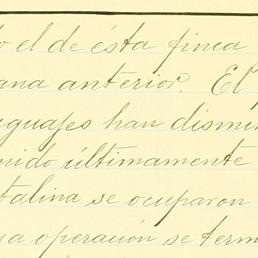 o el de ésta finca
ana anterior. El
guajes han dismin
nido últimamente
talina se ocuparon
ya operación se term